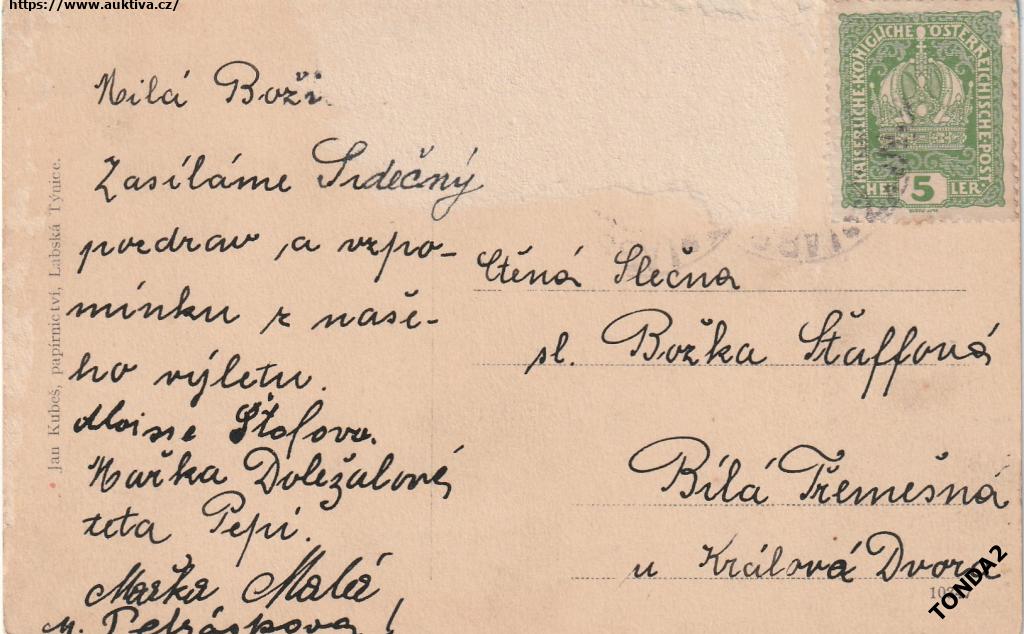 https://www.auktiva.cz/
Milá Boži
Zasíláme Srdečný
pozdrav a vzpo-
mínku z naše-
ho výletu.
Mařka Doležalová
teta Pepi.
Mařka Malá
Jan Kubeš, papírnictví, Labská Týnice.
KAISERLICHE KÖNIGLICHE ÖSTERREICHISCHE POST
HELLER 5
Ctěná Slečna
sl. Božka Štaffová
Bílá Třemešná
u Králová Dvora
TONDA2